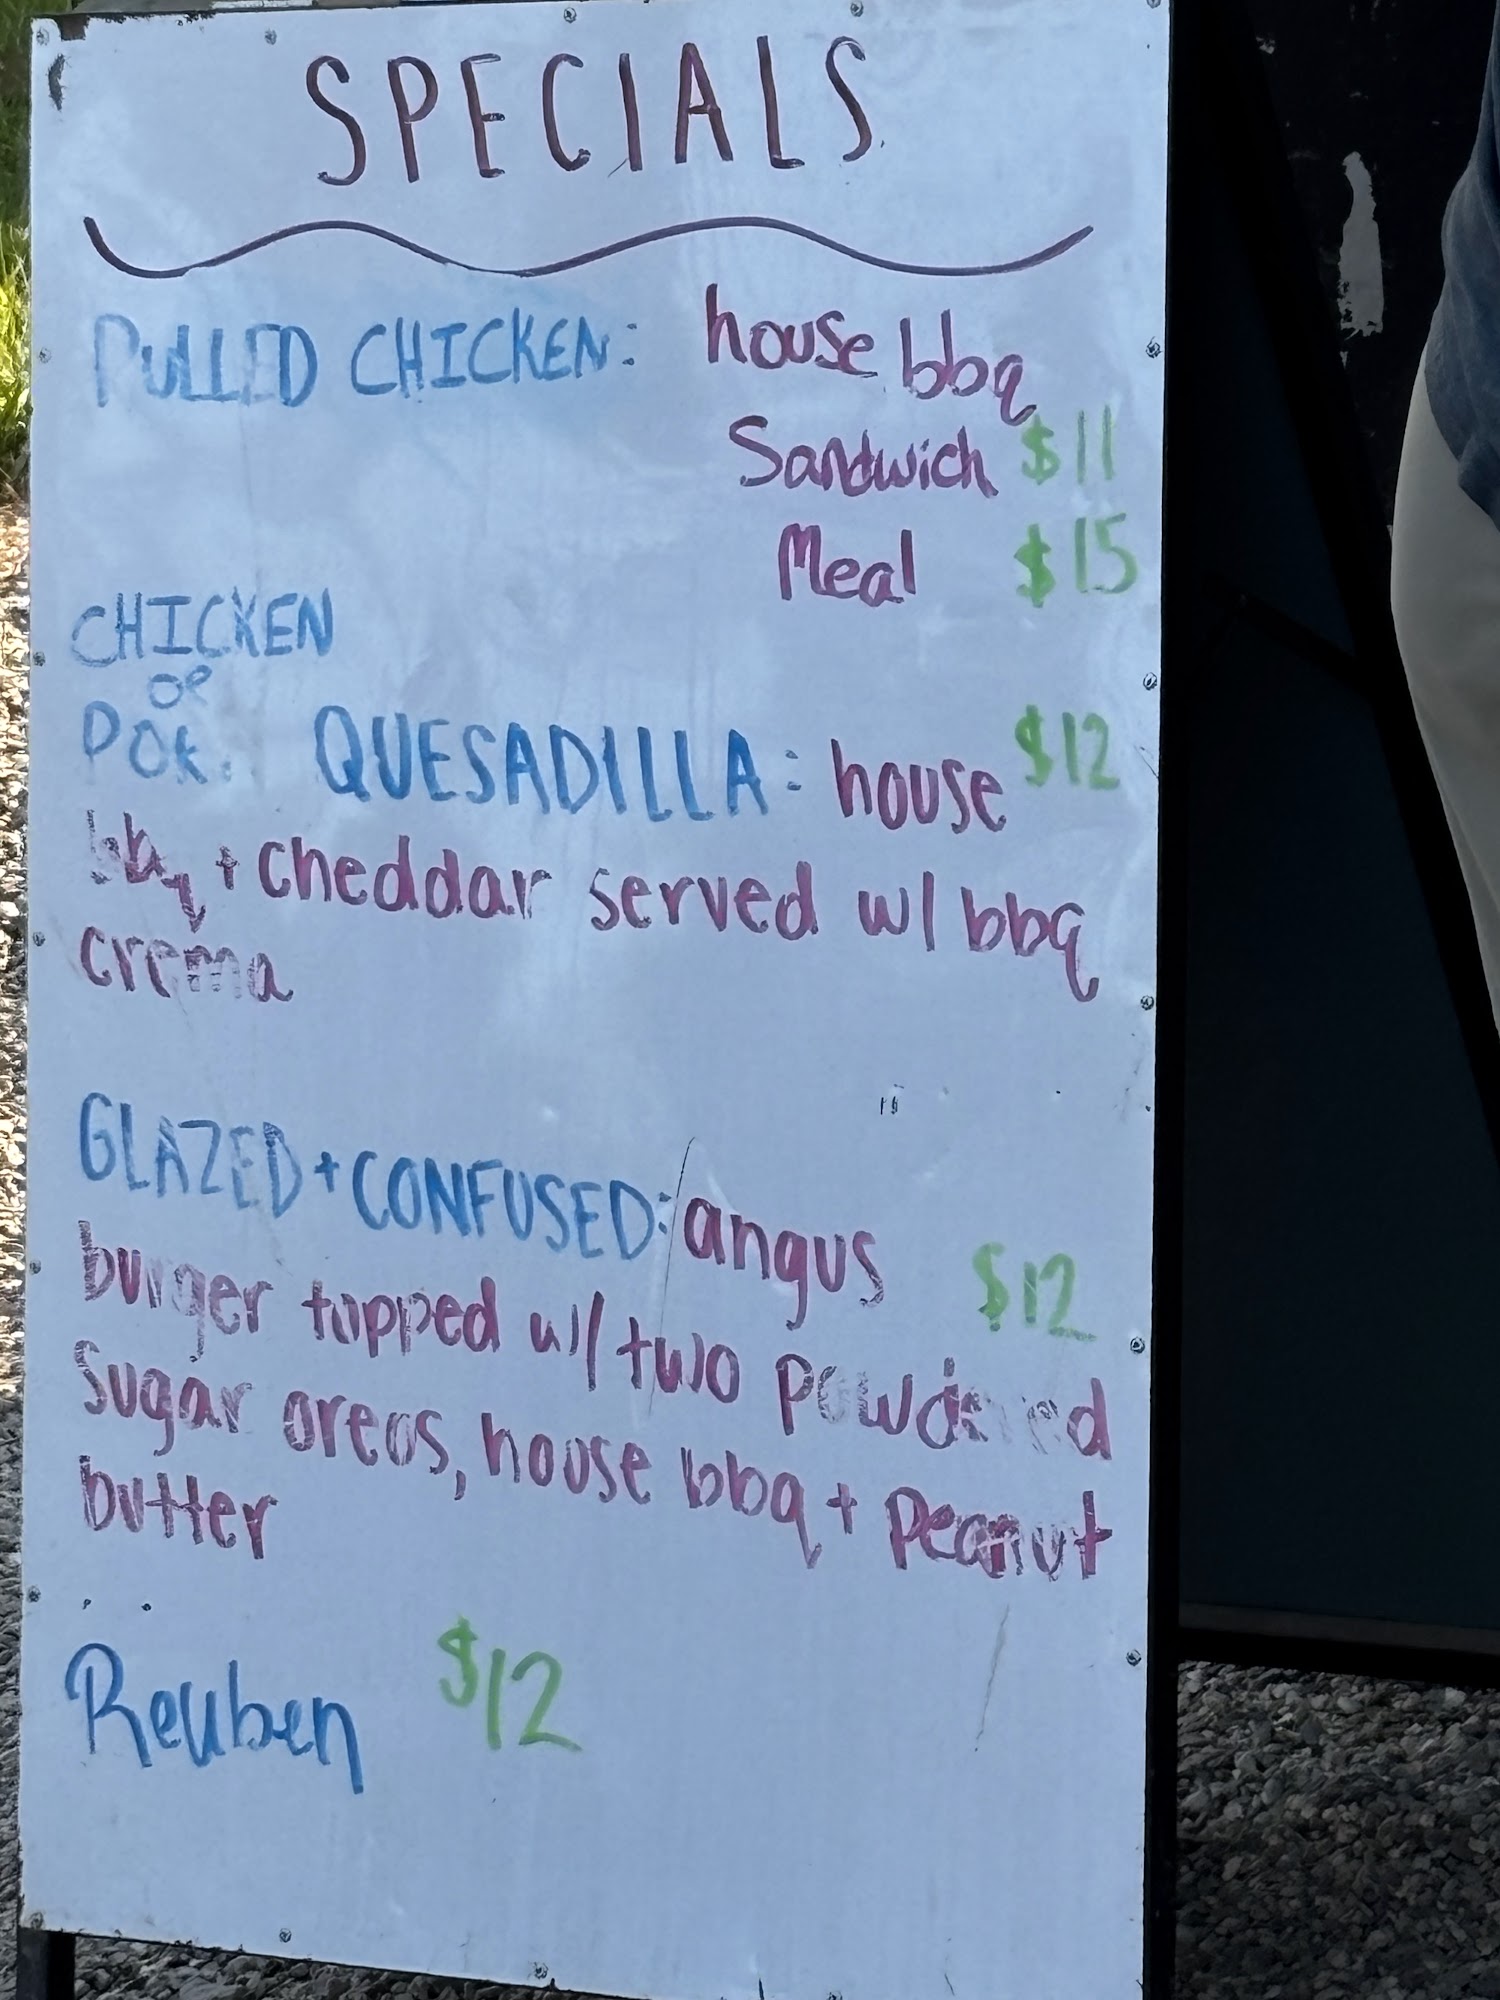 SPECIALS
PULLED CHICKEN: house bbq
Sandwich $11
Meal $15
CHICKEN
or
POK. QUESADILLA: house $12
bbq + cheddar served w/ bbq
crema
GLAZED + CONFUSED: angus $12
burger topped w/ two powdered
Sugar oreos, house bbq + Peanut
butter
Reuben $12